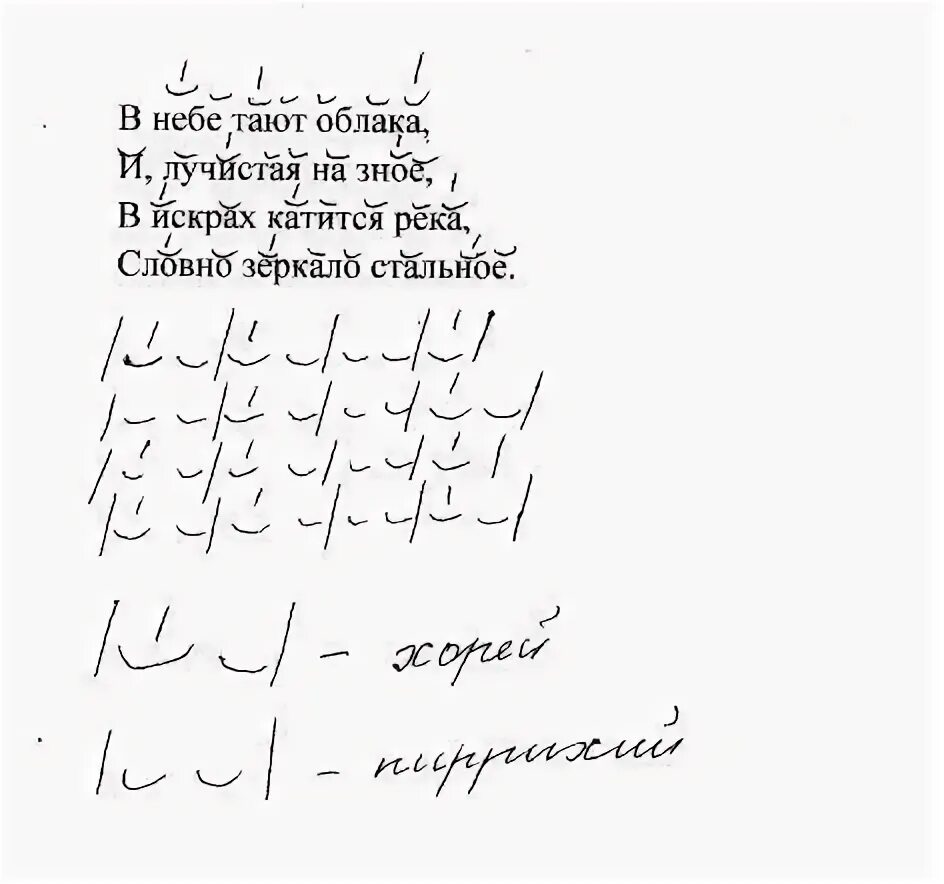 В небе тают облака,
И, лучистая на зное,
В искрах катится река,
Словно зеркало стальное.
- хорей
- пиррихий